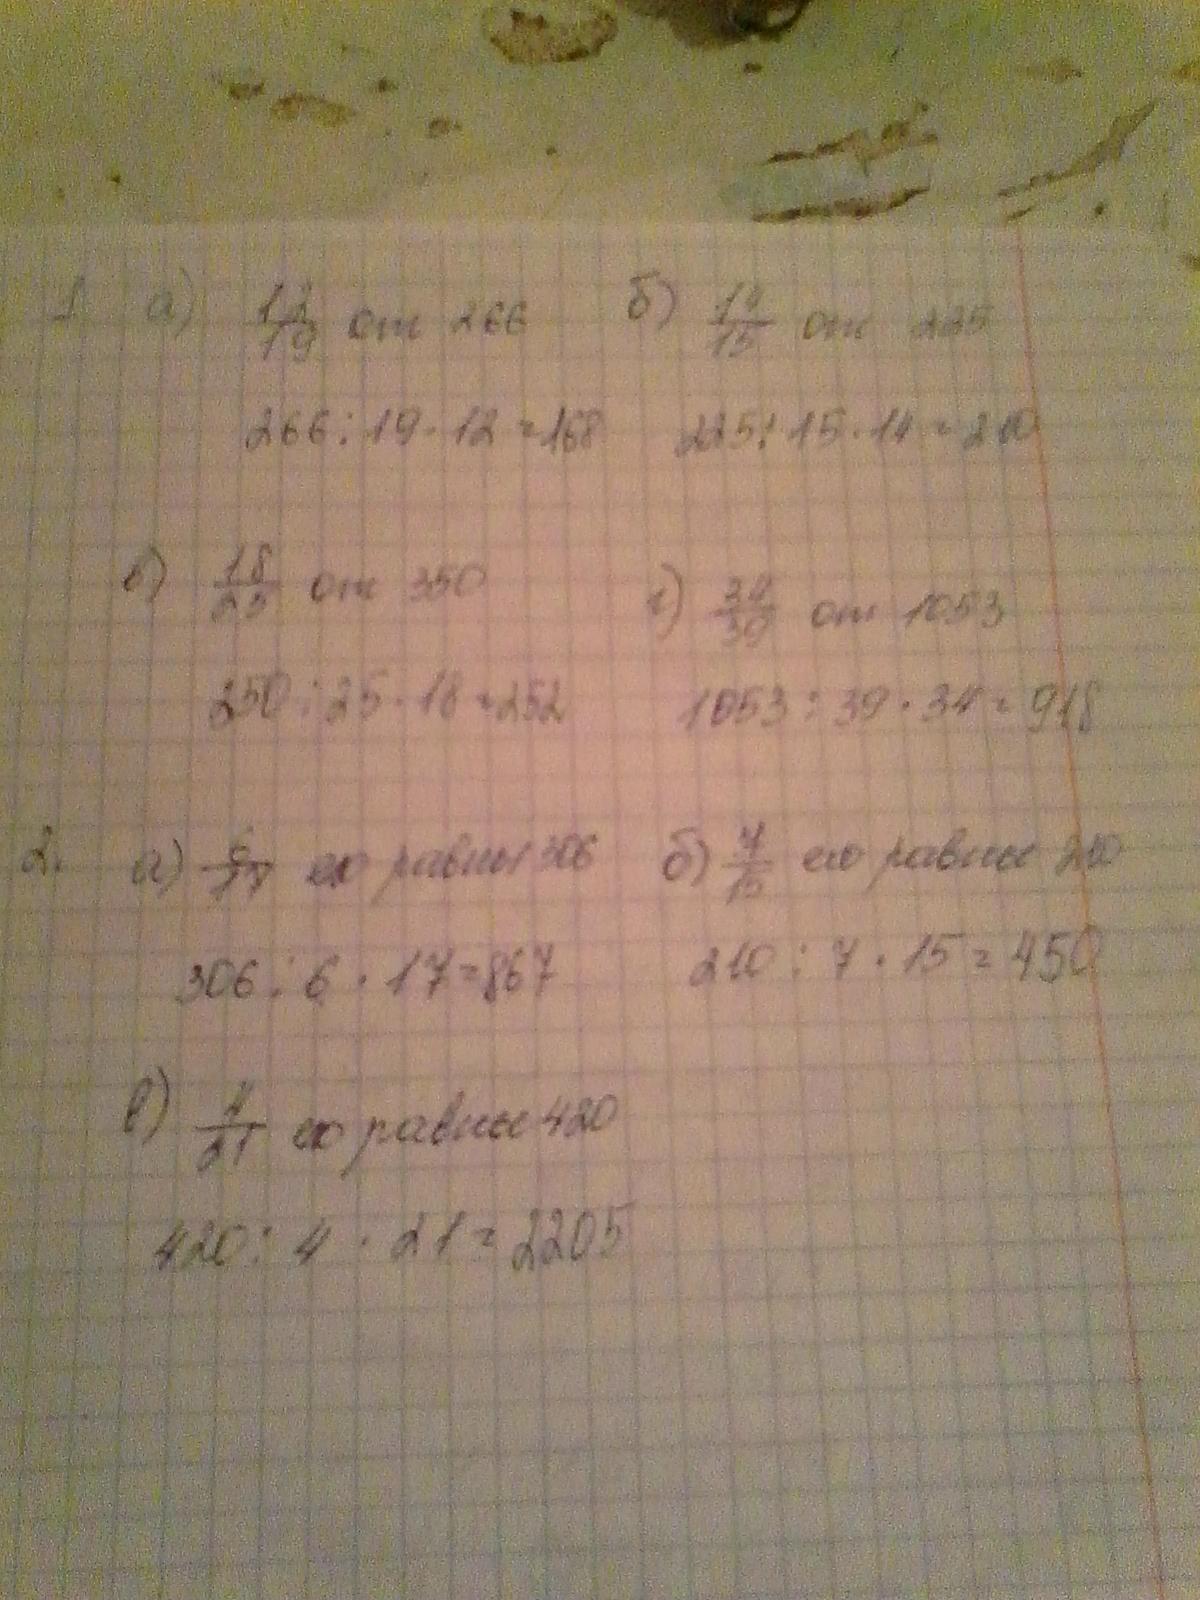 1. а) 12/19 от 266 б) 14/15 от 225
266 : 19 · 12 = 168 225 : 15 · 14 = 210
в) 18/25 от 350 г) 34/39 от 1053
250 : 25 · 18 = 252 1053 : 39 · 34 = 918
2. а) 6/17 его равны 306 б) 7/15 его равны 210
306 : 6 · 17 = 867 210 : 7 · 15 = 450
в) 4/21 его равны 420
420 : 4 · 21 = 2205